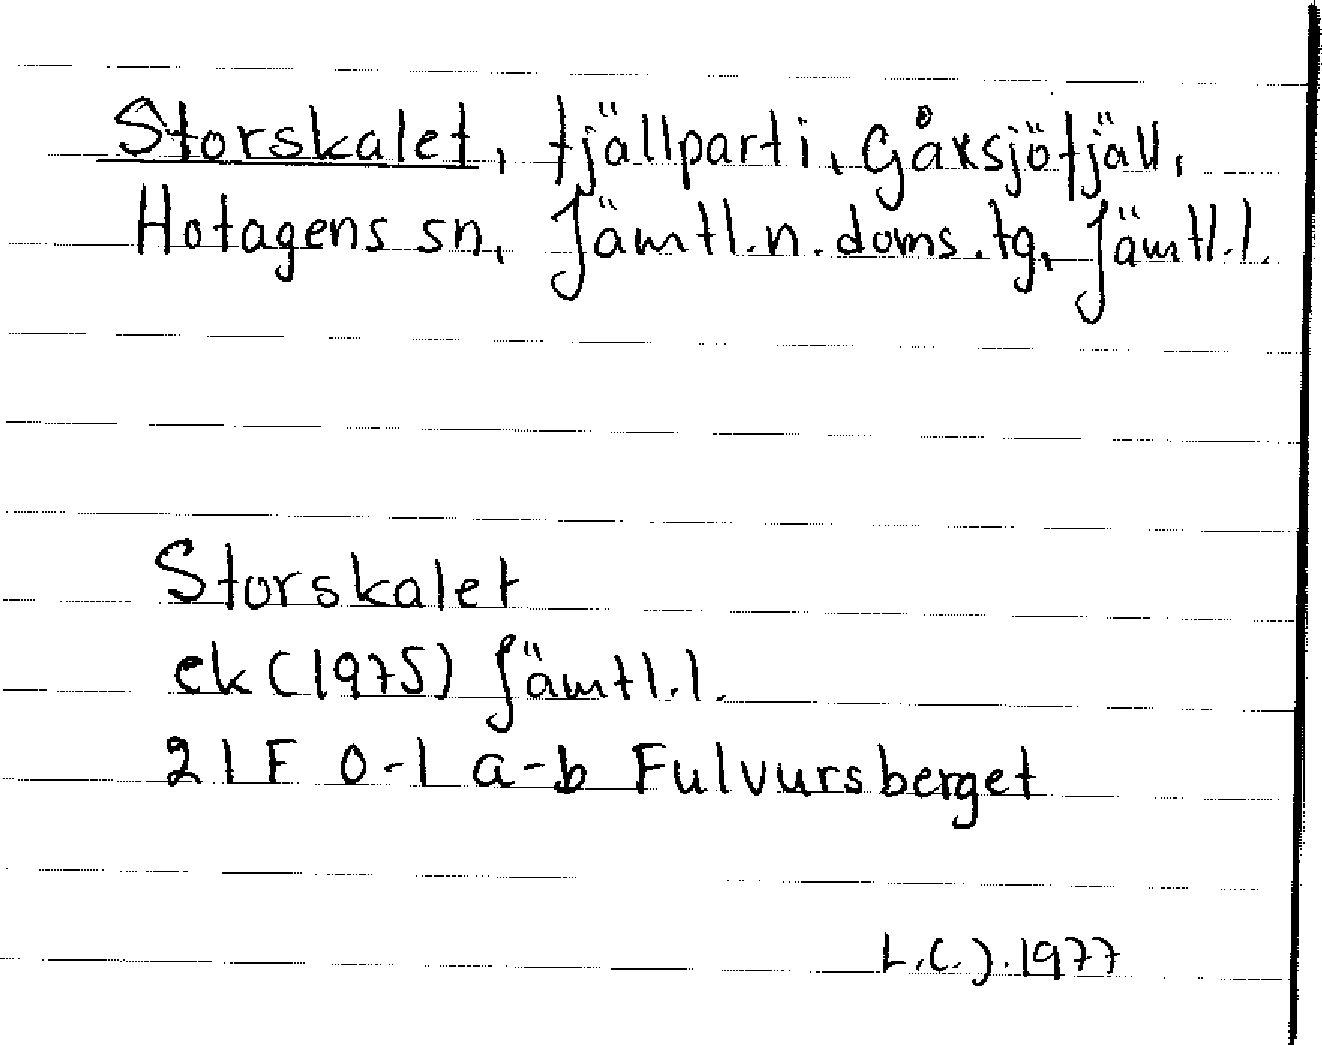 Storskalet, fjällparti, Gåxsjöfjäll,
Hotagens sn, Jämtl.n.doms.tg, Jämtl.l.
Storskalet
ek (1975) Jämtl.l.
21F 0-1 a-b Fulvursberget
L.C.J. 1977